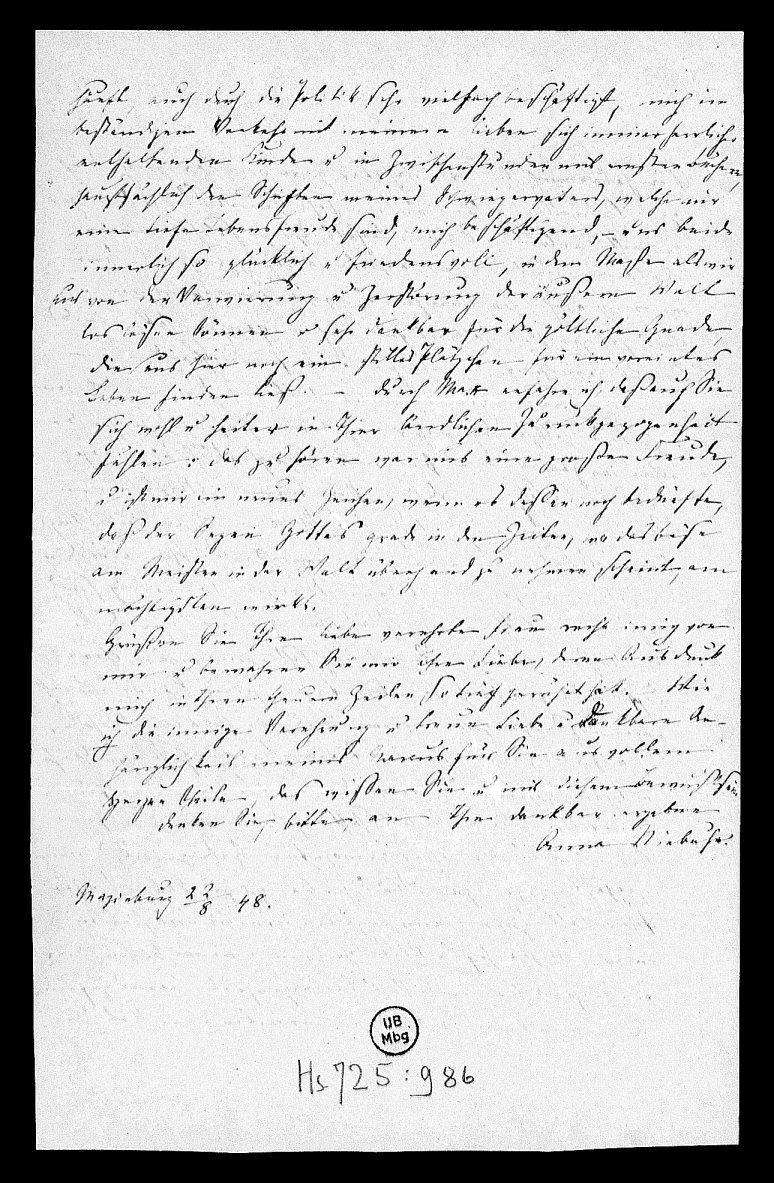 auch durch die Politik sehr vielfach beschäftigt, mich im
beständigen Verkehr mit meinem lieben sich immer herrlicher
entfaltenden Kinde u in Zwischenstunden mit ernsten Büchern,
hauptsächlich den Schriften meines Schwiegervaters, welche mir
eine tiefe Lebensfreude sind, mich beschäftigend, – uns beide
innerlich so glücklich u friedensvoll, in dem Maße als wir
uns von der Verwirrung u Zerstörung der äußern Welt
losmachen können u sehr dankbar für die göttliche Gnade,
die uns hier noch ein stilles Plätzchen für ein vereintes
Leben finden ließ. – Durch Max erfahre ich, daß auch Sie
sich wohl u heiter in Ihrer ländlichen Zurückgezogenheit
fühlen: das zu hören war uns eine große Freude,
u ist mir ein neues Zeichen, wenn es dessen noch bedürfte,
daß der Segen Gottes grade in den Zeiten, wo das böse
am Meisten in der Welt überhand zu nehmen scheint, am
mächtigsten wirkt.
Grüßen Sie Ihre liebe verehrte Frau recht innig von
mir u bewahren Sie mir Ihre Liebe, deren Ausdruck
mich in Ihren theuern Zeilen so tief gerührt hat. Wie
ich die innige Verehrung u treue Liebe u dankbare An-
hänglichkeit meines Marcus für Sie aus vollem
Herzen theile, das wissen Sie u mit diesem Bewußtsein
denken Sie, bitte, an Ihre dankbar ergebene
Anna Niebuhr.
22/8 48.
UB
Mbg
Hs 725:986